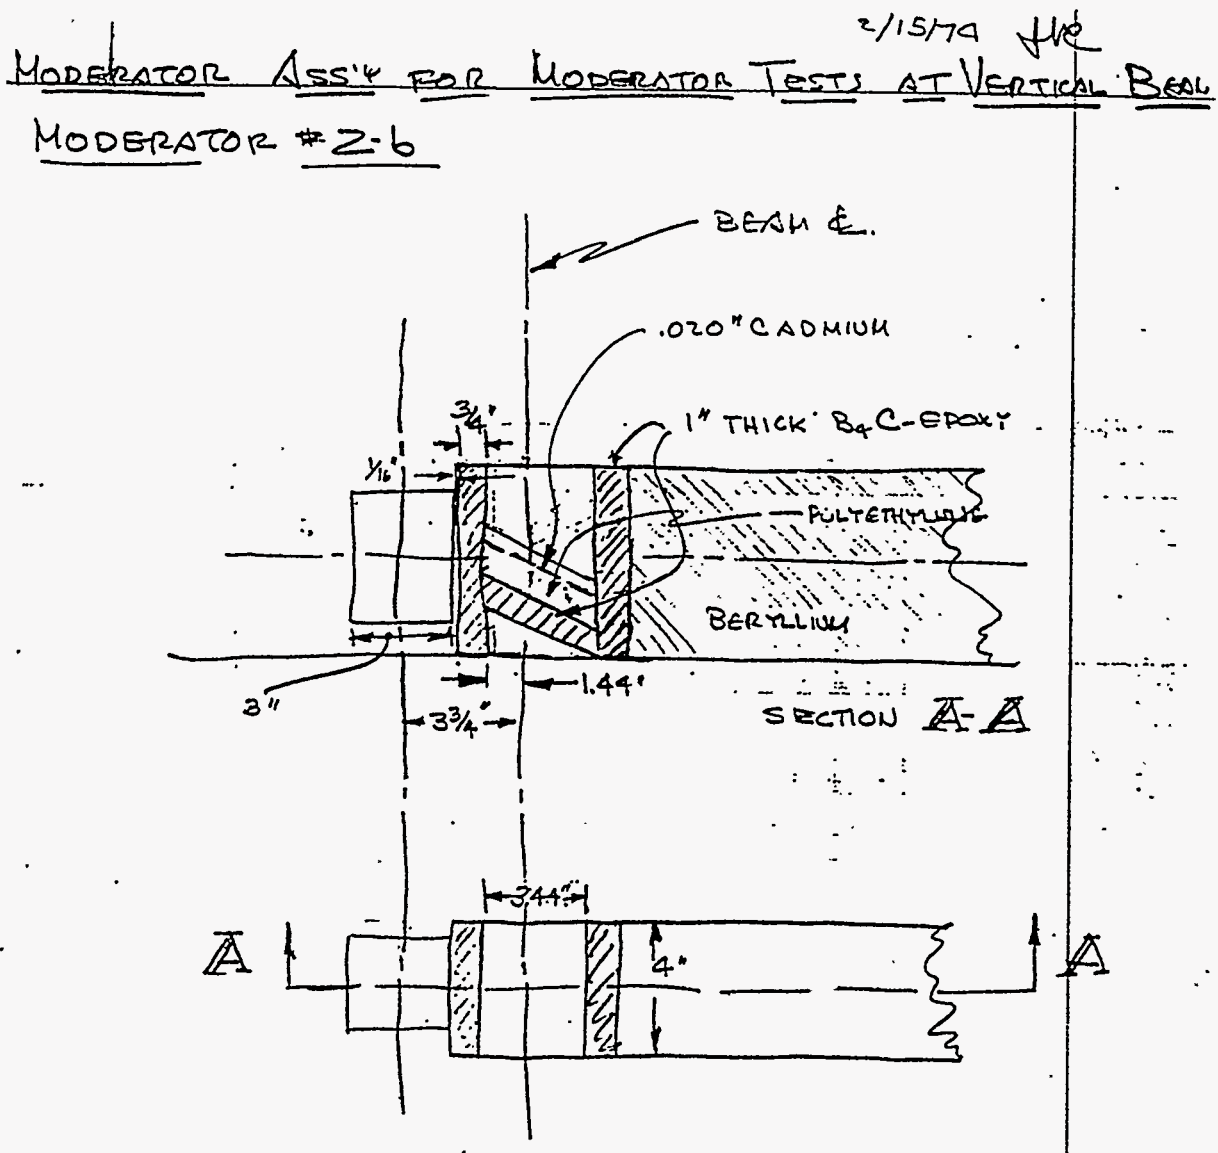 2/15/74
MODERATOR ASS'Y FOR MODERATOR TESTS AT VERTICAL BEAM
MODERATOR #2-b
BEAM ℄.
.020" CADMIUM
3/4"
1" THICK B4C-EPOXY
1/16"
POLYETHYLENE
BERYLLIUM
3"
1.44"
3 3/4"
SECTION A-A
3.44"
A
4"
A